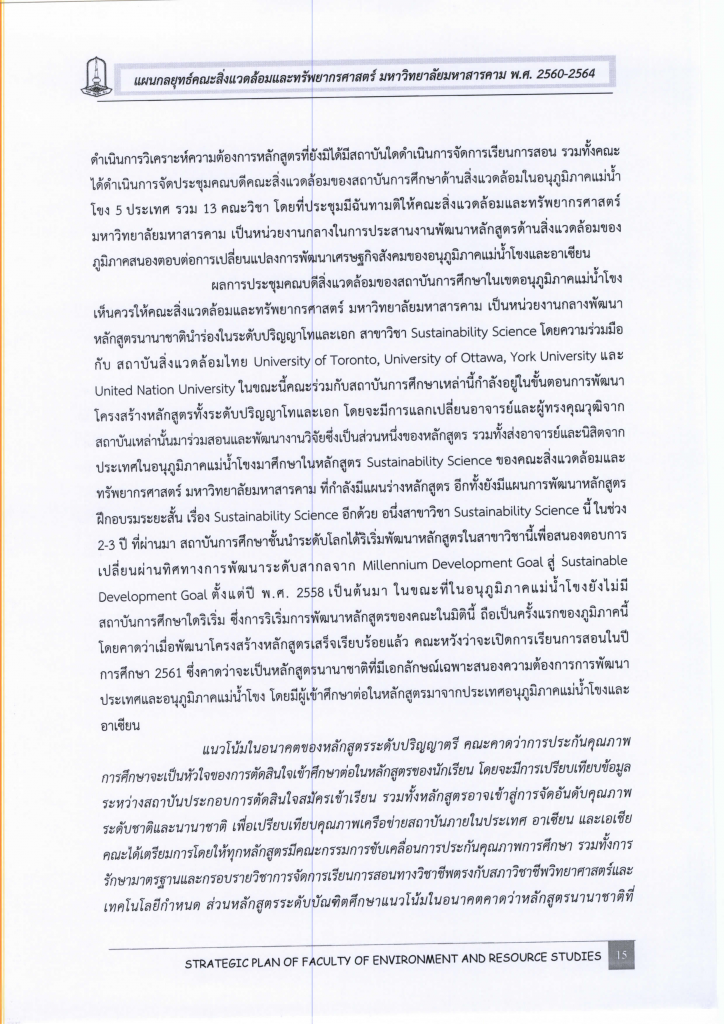 แผนกลยุทธ์คณะสิ่งแวดล้อมและทรัพยากรศาสตร์ มหาวิทยาลัยมหาสารคาม พ.ศ. 2560-2564
ดำเนินการวิเคราะห์ความต้องการหลักสูตรที่ยังมิได้มีสถาบันใดดำเนินการจัดการเรียนการสอน รวมทั้งคณะ
ได้ดำเนินการจัดประชุมคณบดีคณะสิ่งแวดล้อมของสถาบันการศึกษาด้านสิ่งแวดล้อมในอนุภูมิภาคแม่น้ำ
โขง 5 ประเทศ รวม 13 คณะวิชา โดยที่ประชุมมีฉันทามติให้คณะสิ่งแวดล้อมและทรัพยากรศาสตร์
มหาวิทยาลัยมหาสารคาม เป็นหน่วยงานกลางในการประสานงานพัฒนาหลักสูตรด้านสิ่งแวดล้อมของ
ภูมิภาคสนองตอบต่อการเปลี่ยนแปลงการพัฒนาเศรษฐกิจสังคมของอนุภูมิภาคแม่น้ำโขงและอาเซียน
ผลการประชุมคณบดีสิ่งแวดล้อมของสถาบันการศึกษาในเขตอนุภูมิภาคแม่น้ำโขง
เห็นควรให้คณะสิ่งแวดล้อมและทรัพยากรศาสตร์ มหาวิทยาลัยมหาสารคาม เป็นหน่วยงานกลางพัฒนา
หลักสูตรนานาชาตินำร่องในระดับปริญญาโทและเอก สาขาวิชา Sustainability Science โดยความร่วมมือ
กับ สถาบันสิ่งแวดล้อมไทย University of Toronto, University of Ottawa, York University และ
United Nation University ในขณะนี้คณะร่วมกับสถาบันการศึกษาเหล่านี้กำลังอยู่ในขั้นตอนการพัฒนา
โครงสร้างหลักสูตรทั้งระดับปริญญาโทและเอก โดยจะมีการแลกเปลี่ยนอาจารย์และผู้ทรงคุณวุฒิจาก
สถาบันเหล่านั้นมาร่วมสอนและพัฒนางานวิจัยซึ่งเป็นส่วนหนึ่งของหลักสูตร รวมทั้งส่งอาจารย์และนิสิตจาก
ประเทศในอนุภูมิภาคแม่น้ำโขงมาศึกษาในหลักสูตร Sustainability Science ของคณะสิ่งแวดล้อมและ
ทรัพยากรศาสตร์ มหาวิทยาลัยมหาสารคาม ที่กำลังมีแผนร่างหลักสูตร อีกทั้งยังมีแผนการพัฒนาหลักสูตร
ฝึกอบรมระยะสั้น เรื่อง Sustainability Science อีกด้วย อนึ่งสาขาวิชา Sustainability Science นี้ ในช่วง
2-3 ปี ที่ผ่านมา สถาบันการศึกษาชั้นนำระดับโลกได้ริเริ่มพัฒนาหลักสูตรในสาขาวิชานี้เพื่อสนองตอบการ
เปลี่ยนผ่านทิศทางการพัฒนาระดับสากลจาก Millennium Development Goal สู่ Sustainable
Development Goal ตั้งแต่ปี พ.ศ. 2558 เป็นต้นมา ในขณะที่ในอนุภูมิภาคแม่น้ำโขงยังไม่มี
สถาบันการศึกษาใดริเริ่ม ซึ่งการริเริ่มการพัฒนาหลักสูตรของคณะในมิตินี้ ถือเป็นครั้งแรกของภูมิภาคนี้
โดยคาดว่าเมื่อพัฒนาโครงสร้างหลักสูตรเสร็จเรียบร้อยแล้ว คณะหวังว่าจะเปิดการเรียนการสอนในปี
การศึกษา 2561 ซึ่งคาดว่าจะเป็นหลักสูตรนานาชาติที่มีเอกลักษณ์เฉพาะสนองความต้องการการพัฒนา
ประเทศและอนุภูมิภาคแม่น้ำโขง โดยมีผู้เข้าศึกษาต่อในหลักสูตรมาจากประเทศอนุภูมิภาคแม่น้ำโขงและ
อาเซียน
แนวโน้มในอนาคตของหลักสูตรระดับปริญญาตรี คณะคาดว่าการประกันคุณภาพ
การศึกษาจะเป็นหัวใจของการตัดสินใจเข้าศึกษาต่อในหลักสูตรของนักเรียน โดยจะมีการเปรียบเทียบข้อมูล
ระหว่างสถาบันประกอบการตัดสินใจสมัครเข้าเรียน รวมทั้งหลักสูตรอาจเข้าสู่การจัดอันดับคุณภาพ
ระดับชาติและนานาชาติ เพื่อเปรียบเทียบคุณภาพเครือข่ายสถาบันภายในประเทศ อาเซียน และเอเชีย
คณะได้เตรียมการโดยให้ทุกหลักสูตรมีคณะกรรมการขับเคลื่อนการประกันคุณภาพการศึกษา รวมทั้งการ
รักษามาตรฐานและกรอบรายวิชาการจัดการเรียนการสอนทางวิชาชีพตรงกับสภาวิชาชีพวิทยาศาสตร์และ
เทคโนโลยีกำหนด ส่วนหลักสูตรระดับบัณฑิตศึกษาแนวโน้มในอนาคตคาดว่าหลักสูตรนานาชาติที่
STRATEGIC PLAN OF FACULTY OF ENVIRONMENT AND RESOURCE STUDIES 15